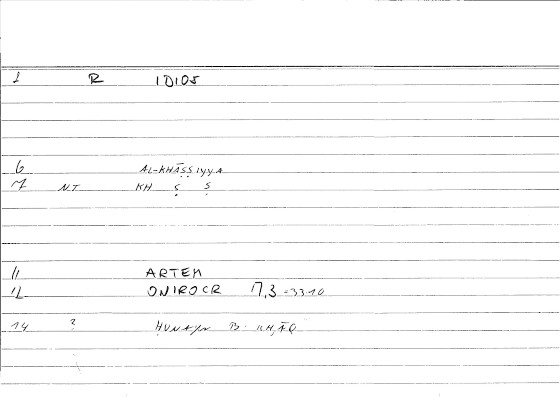 1 R IDIOS
6 AL-KHĀṢṢIYYA
7 N.T KH Ṣ Ṣ
11 ARTEM
12 ONIROCR 17,3-3310
14 ? ḤUNAYN B.